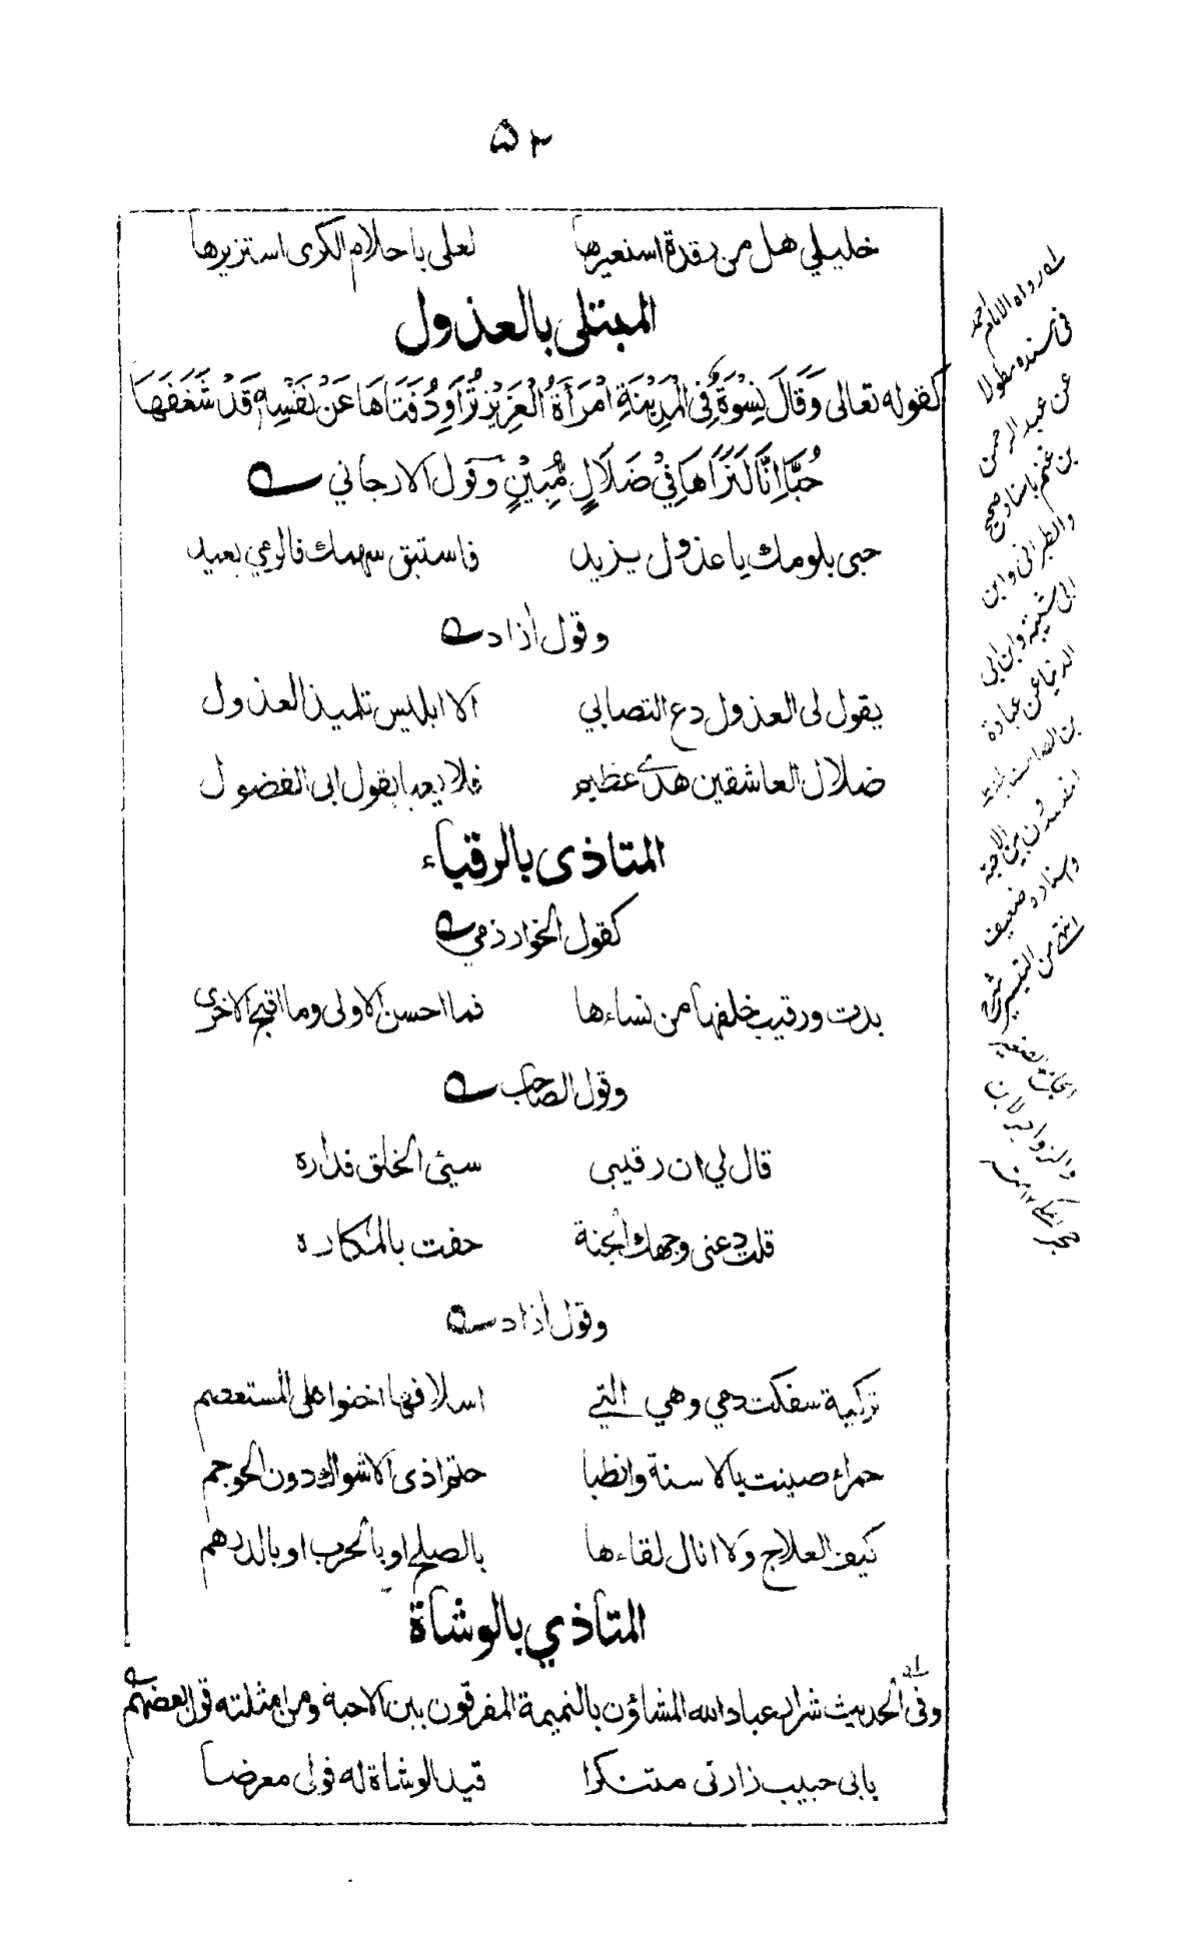 ۵۲
خليلي هل من رقدة استعيرها لعلى باحلام الكرى استزيرها
المبتلى بالعذول
كقوله تعالى وَقَالَ نِسْوَةٌ فِى الْمَدِيْنَةِ امْرَأَةُ الْعَزِيْزِ تُرَاوِدُ فَتَاهَا عَنْ نَفْسِهٖ قَدْ شَغَفَهَا
حُبًّا اِنَّا لَنَرَاهَا فِيْ ضَلَالٍ مُّبِيْنٍ وقول الارجاني ؎
حبى بلومك يا عذول يزيد فاستبق سهمك فالرمي بعيد
وقول أزاد ؎
يقول لى العذول دع التصابي الا ابليس تلميذ العذول
ضلال العاشقين هدى عظيم فلا يعبا بقول ابى الفضول
المتاذى بالرقباء
كقول الخوارزمي ؎
بدت ورقيب خلفها من نساءها فما احسن الاولى وما اقبح الاخرى
وقول الصاحب ؎
قال لي ان رقيبى سيئ الخلق فداره
قلت دعنى وجهك الجنة حفت بالمكاره
وقول أزاد ؎
تركية سفكت دمي وهي التي اسلافها اخنوا على المستعصم
حمراء صينت بالاسنة والظبا حلتم اذى الاشواك دون الحوجم
كيف العلاج ولا انال لقاءها بالصلح او بالحرب او بالدرهم
المتاذي بالوشاة
وفى الحديث شرار عباد الله المشاؤن بالنميمة المفرقون بين الاحبة ومن امثلته قول بعضهم ؎
بابى حبيب زارنى متنكرا فبدا لوشاة له فولى معرضا
له رواه الامام احمد
فى مسنده مطولا
عن عبد الرحمن
بن غنم باسناد صحيح
والطبرانى وابن
ابى شيبة وابن ابى
الدنيا عن عبادة
بن الصامت بلفظ
المفسدون بين الاحبة
واسناده ضعيف
انتهى من التيسير شرح
الجامع الصغير
والزواجر لابن
حجر المكى ١٢ منه